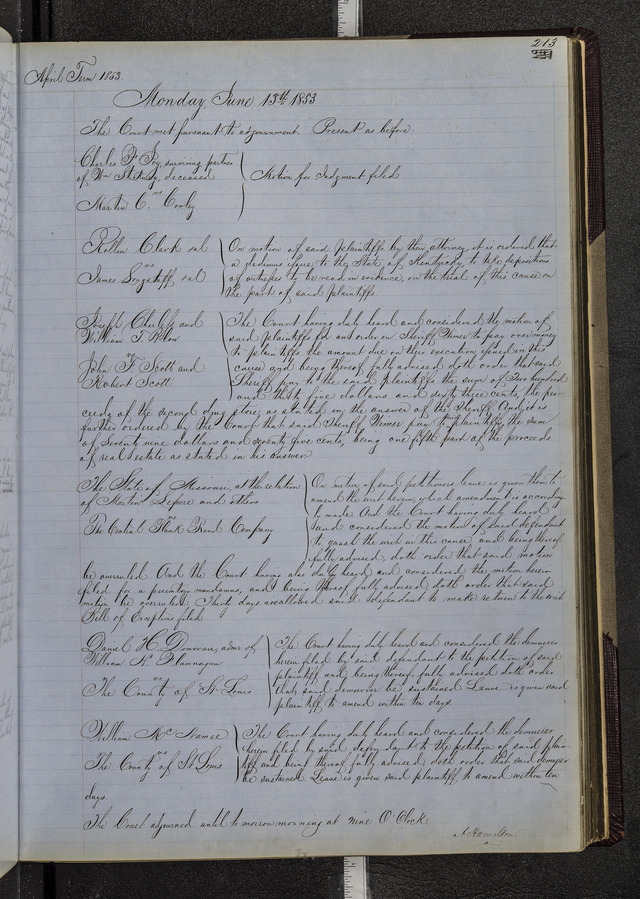 213
April Term 1853.
Monday, June 13th 1853
The Court met pursuant to adjournment. Present as before.
Charles P. surviving partner
of Wm deceased
vs
Martin C.
Motion for Judgment filed
Rollin Clark et al
vs
James et al
On motion of said plaintiffs by their attorney it is ordered that
a dedimus issue to the State of Kentucky to take depositions
of witnesses to be read in evidence, on the trial of this cause on
the part of said plaintiffs
Joseph Charless and
William T.
vs
John F. Scott and
Robert Scott
The Court having duly heard and considered the motion of
said plaintiffs for an order on Sheriff to pay over money
to plaintiffs the amount due on their execution issued in this
cause and being thereof fully advised doth order that said
Sheriff pay to the said plaintiffs the sum of Two hundred
and thirty five dollars and sixty three cents, the pro-
ceeds of the drug store, as stated in the answer of the Sheriff. And it is
further ordered by the Court that said Sheriff pay to plaintiffs, the sum
of Seventy nine dollars and seventy five cents, being one fifth part of the proceeds
of real estate as stated in his answer
The State of Missouri, at the relation
of Martin and others
vs
The Central Plank Road Company
On motion of said petitioners, leave is given them to
amend the writ herein, which amendment is according-
ly made. And the Court having duly heard
and considered the motion of said defendant
to quash the writ in this cause, and being thereof
fully advised, doth order that said motion
be overruled. And the Court having also duly heard and considered the motion herein
filed for a peremptory mandamus, and being thereof fully advised doth order that said
motion be overruled. Thirty days are allowed said defendant to make return to the writ
Bill of Exceptions filed
Daniel H. Donovan, admr. of
William K. Flannagan
vs
The County of St Louis
The Court having duly heard and considered the demurrer
herein filed by said defendant to the petition of said
plaintiff and being thereof fully advised doth order
that said demurrer be sustained. Leave is given said
plaintiff to amend within ten days.
William McNamee
vs
The County of St Louis
The Court having duly heard and considered the demurrer
herein filed by said defendant to the petition of said plain-
tiff and being thereof fully advised, doth order that said demurrer
be sustained. Leave is given said plaintiff to amend within ten
days.
The Court adjourned until tomorrow morning at nine O'Clock
A. Hamilton